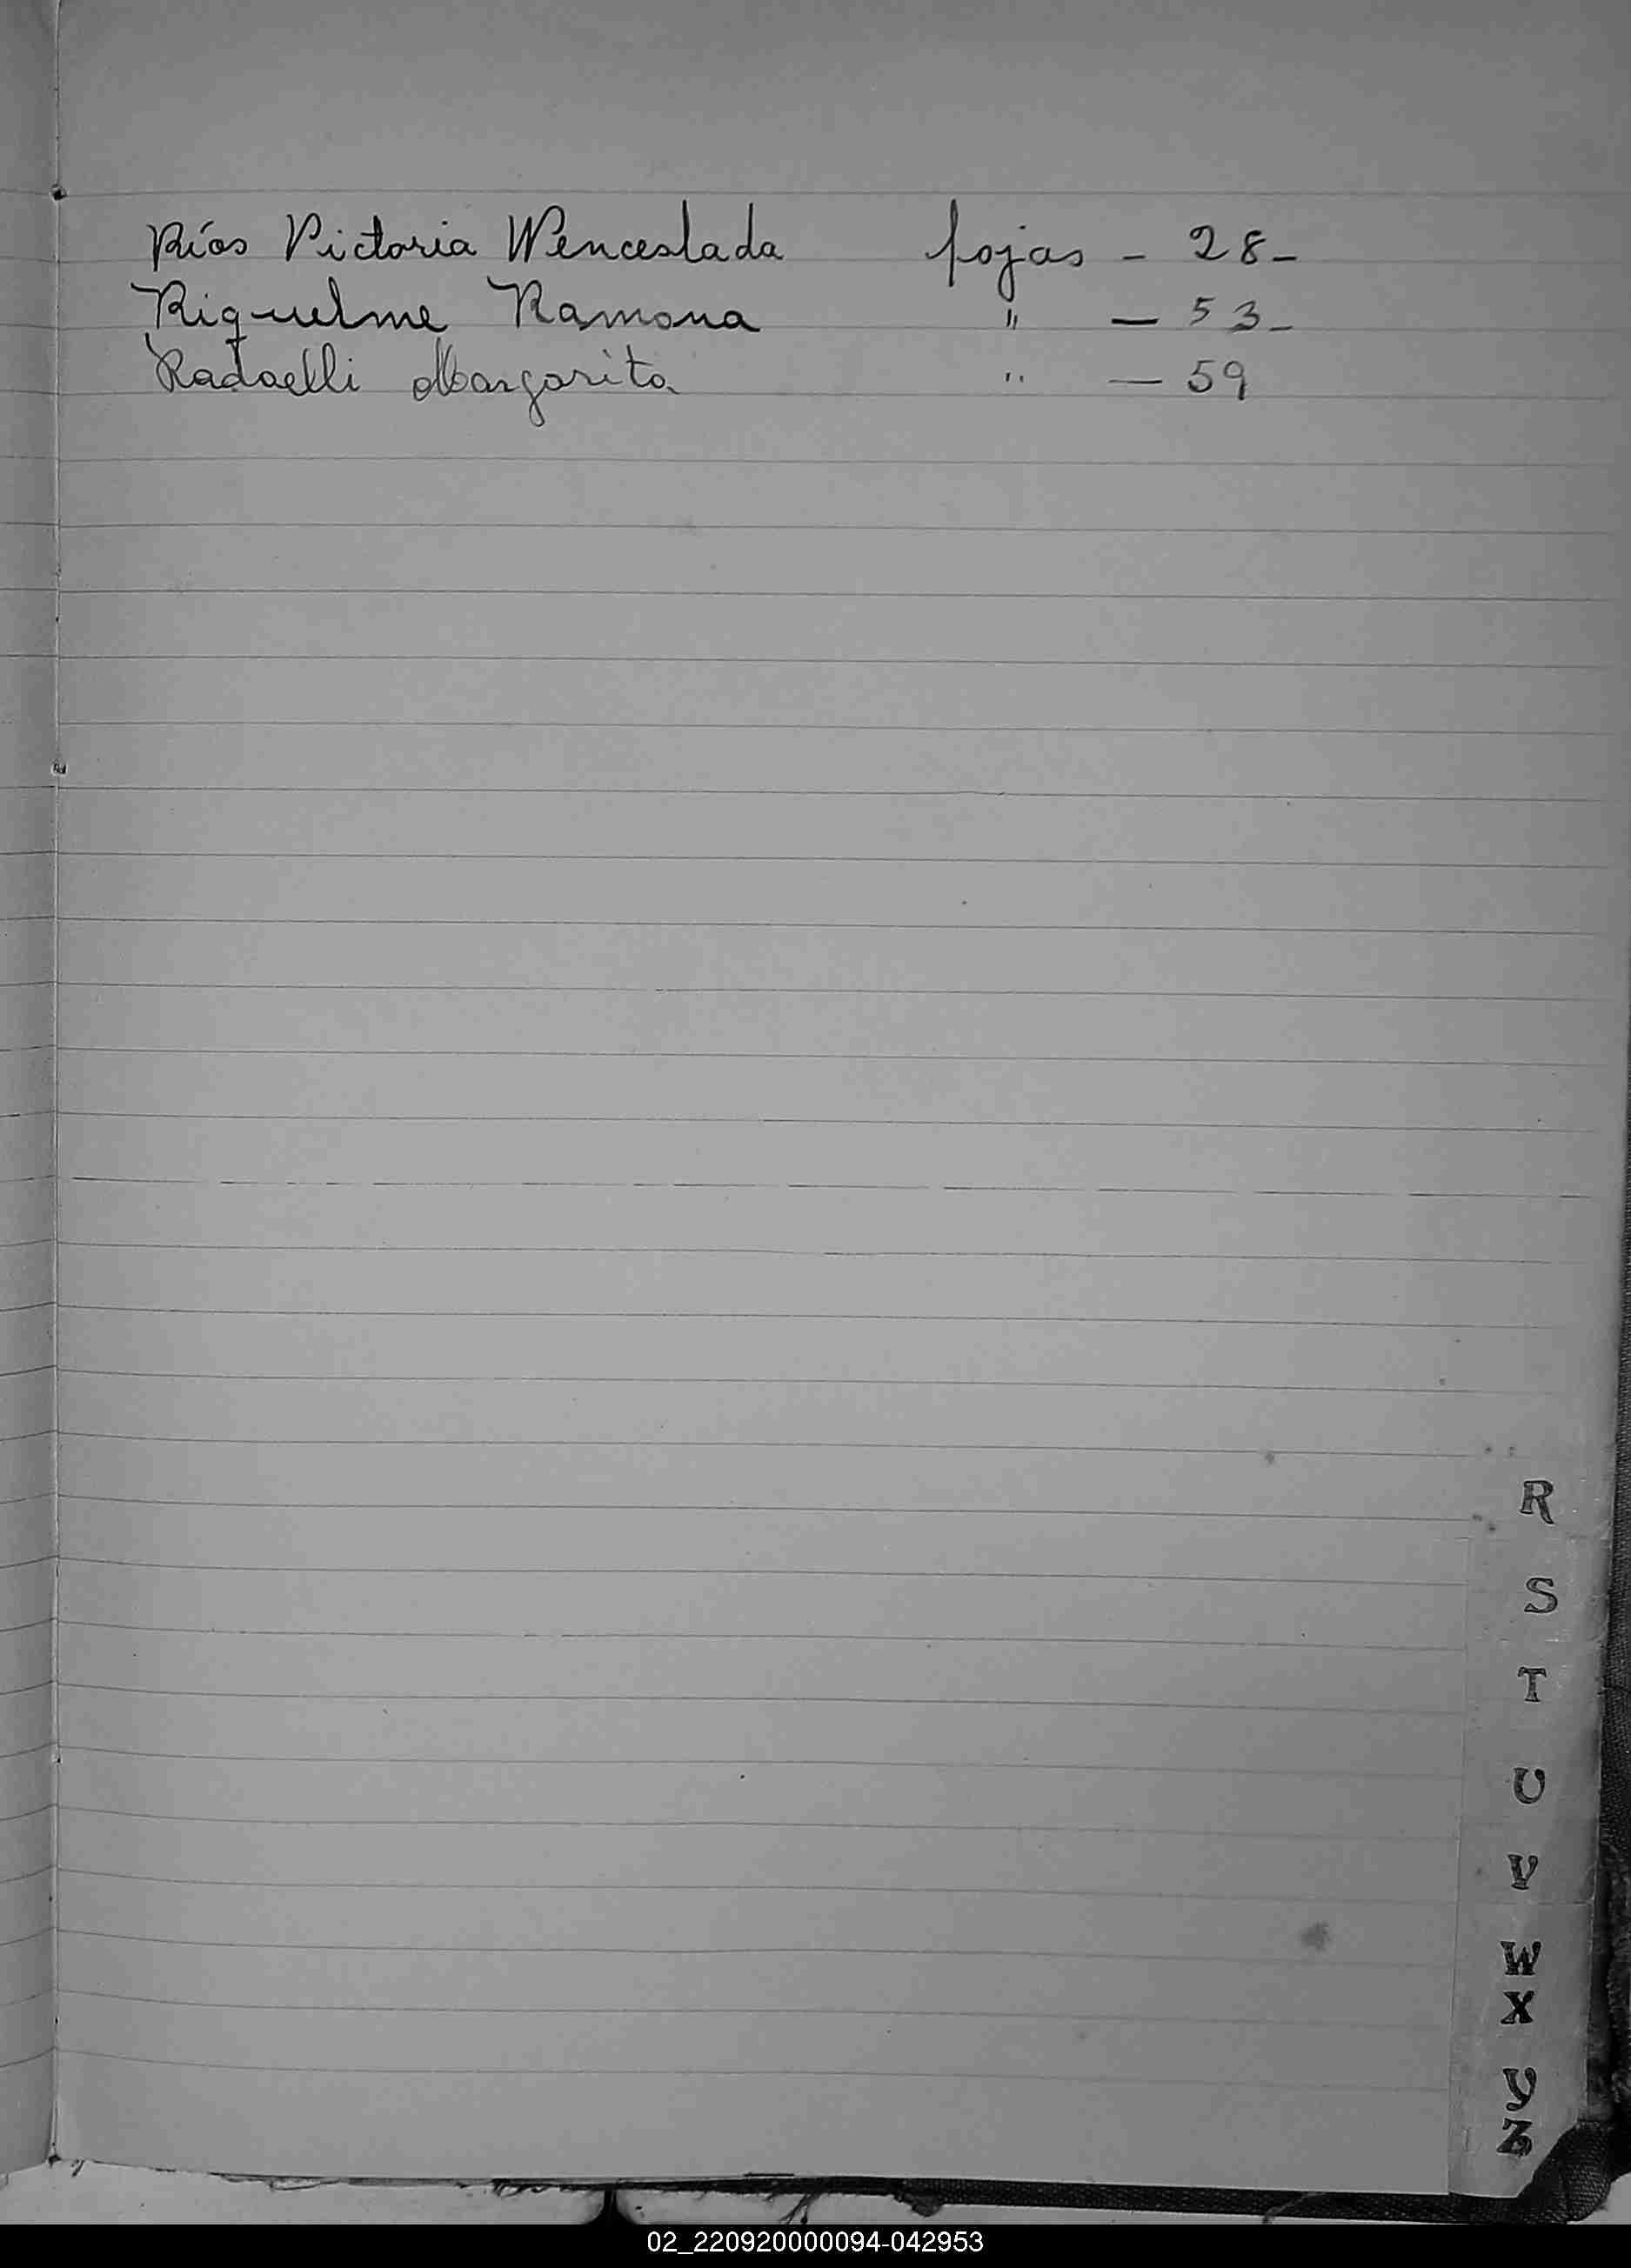 Ríos Victoria Wenceslada fojas - 28-
Riquelme Ramona " — 53-
Radaelli Margarita " — 59
R
S
T
U
V
W
X
Y
Z
02_220920000094-042953